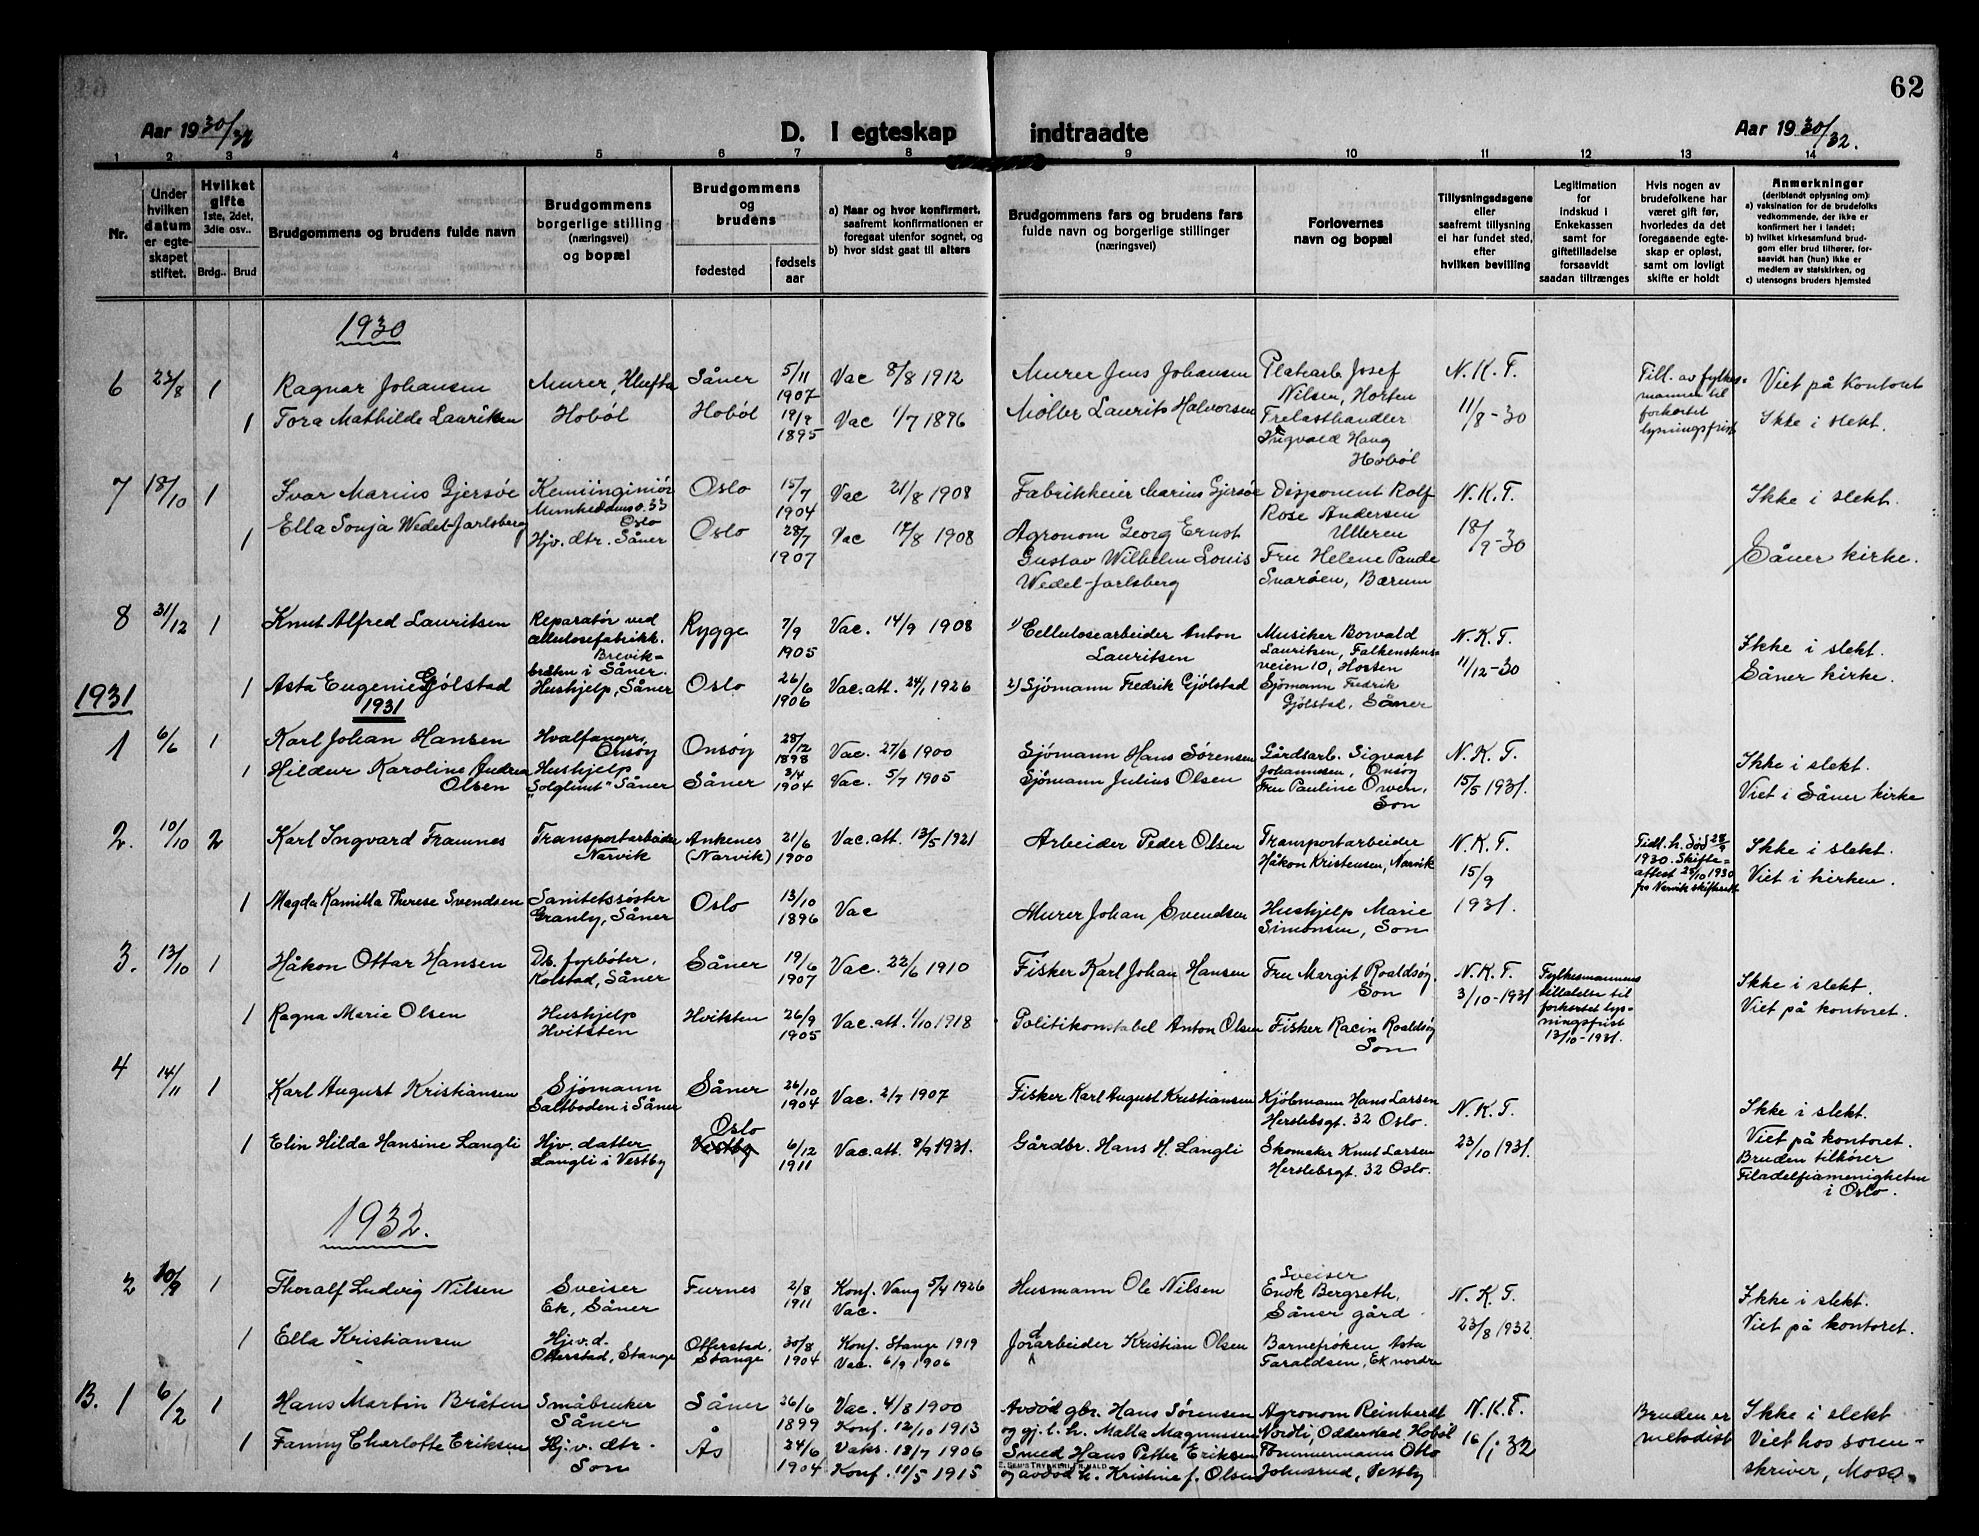 62
Aar 1930/32
D. I egteskap indtraadte
Aar 1930/32.
1 2 3 4 5 6 7 8 9 10 11 12 13 14
Nr.
Under hvilken datum er egteskapet stiftet.
Hvilket gifte
1ste, 2det, 3die osv..
Brdg.. Brud
Brudgommens og brudens fulde navn
Brudgommens borgerlige stilling (næringsvei) og bopæl
Brudgommens og brudens
fødested
fødsels aar
a) Naar og hvor konfirmert, saafremt konfirmationen er foregaat utenfor sognet, og
b) hvor sidst gaat til alters
Brudgommens fars og brudens fars fulde navn og borgerlige stillinger (næringsvei)
Forlovernes navn og bopæl
Tillysningsdagene eller saafremt tillysning ei har fundet sted, efter hvilken bevilling
Legitimation for Indskud i Enkekassen samt for giftetilladelse forsaavidt saadan tiltrænges
Hvis nogen av brudefolkene har været gift før, hvorledes da det foregaaende egteskap er opløst, samt om lovligt skifte er holdt
Anmerkninger
(deriblandt oplysning om):
a) vaksination for de brudefolks vedkommende, der ikke er konfirmert her i landet;
b) hvilket kirkesamfund brudgom eller brud tilhører, forsaavidt han (hun) ikke er medlem av statskirken, og
c) utensogns bruders hjemsted
1930
6 23/8 1 Ragnar Johansen Murer, Såner 5/11 1907 Vac 8/8 1912 Murer Jens Johansen Platearb. Josef Nilsen, Horten N. K. T. Till. av fylkesmannen til forkortet lysningsfrist Viet på kontoret
1 Tora Mathilde Lauritzen Hobøl Hobøl 1895 Vac 1/7 1896 Møller Laurits Halvorsen Trelasthandler Ingvald Haug Hobøl 11/8-30 Ikke i slekt.
7 18/10 1 Ivar Marius Gjersøe Kemiingeniør Munkedamsv. 33 Oslo Oslo 15/7 1904 Vac 21/8 1908 Fabrikkeier Marius Gjersøe Disponent Rolf Rose Andersen Ulleren N. K. T. Ikke i slekt.
1 Ella Sonja Wedel-Jarlsberg Hjv. dtr. Såner Oslo 28/7 1907 Vac 17/8 1908 Agronom Georg Ernst Gustav Wilhelm Louis Wedel-Jarlsberg Fru Helene Paude Snarøen, Bærum 18/9-30 Såner kirke.
8 31/12 1 Knut Alfred Lauritsen Reparatør ved cellulosefabrikk. Brevikbråten i Såner. Rygge 7/9 1905 Vac. 14/9 1908 1) Cellulosearbeider Anton Lauritsen Musiker Borvald Lauritsen, Falkenstensveien 10, Horten N. K. T. Ikke i slekt.
1 Asta Eugenie Gjølstad Hushjelp, Såner Oslo 26/6 1906 Vac. att. 24/1 1926 2) Sjømann Fredrik Gjølstad Sjømann Fredrik Gjølstad, Såner 11/12-30 Såner kirke.
1931
1931
1 6/6 1 Karl Johan Hansen Hvalfanger, Onsøy Onsøy 28/12 1898 Vac. 27/6 1900 Sjømann Hans Sørensen Gårdsarb. Sigvart Johannesen, Onsøy N. K. T. Ikke i slekt.
1 Hildur Karoline Andrea Olsen Hushjelp "Solglimt" Såner Såner 3/4 1904 Vac. 5/7 1905 Sjømann Julius Olsen Fru Pauline Owen, Son 15/5 1931. Viet i Såner kirke
2. 10/10 2 Karl Ingvard Framnes Transportarbeider Narvik Ankenes (Narvik) 21/6 1900 Vac. att. 13/5 1921 Arbeider Peder Olsen Transportarbeider Håkon Kristensen, Narvik N. K. T. Tidl. h. død 28/9 1930. Skifteattest 25/10 1930 fra Narvik skifterett Ikke i slekt.
1 Magda Kamilla Therese Svendsen Sanitetssøster Granly, Såner Oslo 13/10 1896 Vac Murer Johan Svendsen Hushjelp Marie Simonsen, Son 15/9 1931. Viet i kirken.
3. 13/10 1 Håkon Ottar Hansen Ds. fyrbøter, Kolstad, Såner Såner 19/6 1907 Vac. 22/6 1910 Fisker Karl Johan Hansen Fru Margit Roaldsøy Son N. K. T. 3/10-1931 Fylkesmannens tillatelse til forkortet lysningsfrist 13/10-1931. Ikke i slekt.
1 Ragna Marie Olsen Hushjelp Hvitsten Hvitsten 26/9 1905 Vac. att. 1/10 1918 Politikonstabel Anton Olsen Fisker Racin Roaldsøy Son Viet på kontoret.
4 14/11 1 Karl August Kristiansen Sjømann Saltboden i Såner Såner 26/10 1904 Vac. 2/7 1907 Fisker Karl August Kristiansen Kjøbmann Hans Larsen Herslebsgt. 32 Oslo. N. K. T. Ikke i slekt.
1 Elin Hilda Hansine Langli Hjv. datter Langli i Vestby Oslo Vestby 6/12 1911 Vac. att. 8/9 1931. Gårdbr. Hans H. Langli Skomaker Knut Larsen Herslebsgt. 32 Oslo. 23/10 1931. Viet på kontoret. Bruden tilhører Filadelfiamenigheten i Oslo.
1932.
2 10/9 1 Thoralf Ludvig Nilsen Sveiser Ek, Såner Furnes 2/8 1911 Konf. Vang 5/4 1926 Vac. Husmann Ole Nilsen Sveiser Enok Bergseth, Såner gård. N. K. T. Ikke i slekt.
1 Ella Kristiansen Hjv. d. Otterstad, Stange Otterstad, Stange 30/8 1904 Konf. Stange 1919 Vac. 6/9 1906 Jordarbeider Kristian Olsen Barnefrøken Asta Taraldsen, Ek nordre 23/8 1932 Viet på kontoret.
B. 1 6/2 1 Hans Martin Bråten Småbruker Såner Såner 26/6 1899 Vac. 4/8 1900 Konf. 12/10 1913 Avdød gbr. Hans Sørensen og gj. l. h. Malla Magnussen Agronom Reinhardt Nordli, Odderstad, Hobøl N. K. T. Bruden er metodist Ikke i slekt
1 Fanny Charlotte Eriksen Hjv. dtr. Son Ås 24/6 1904 Vaks. 18/7 1906 Konf. 11/5 1915 Smed Hans Petter Eriksen og avdød h. Kristine f. Olsen Tømmermann Otto Johnsrud, Vestby 16/1 32 Viet hos sorenskriver, Moss.